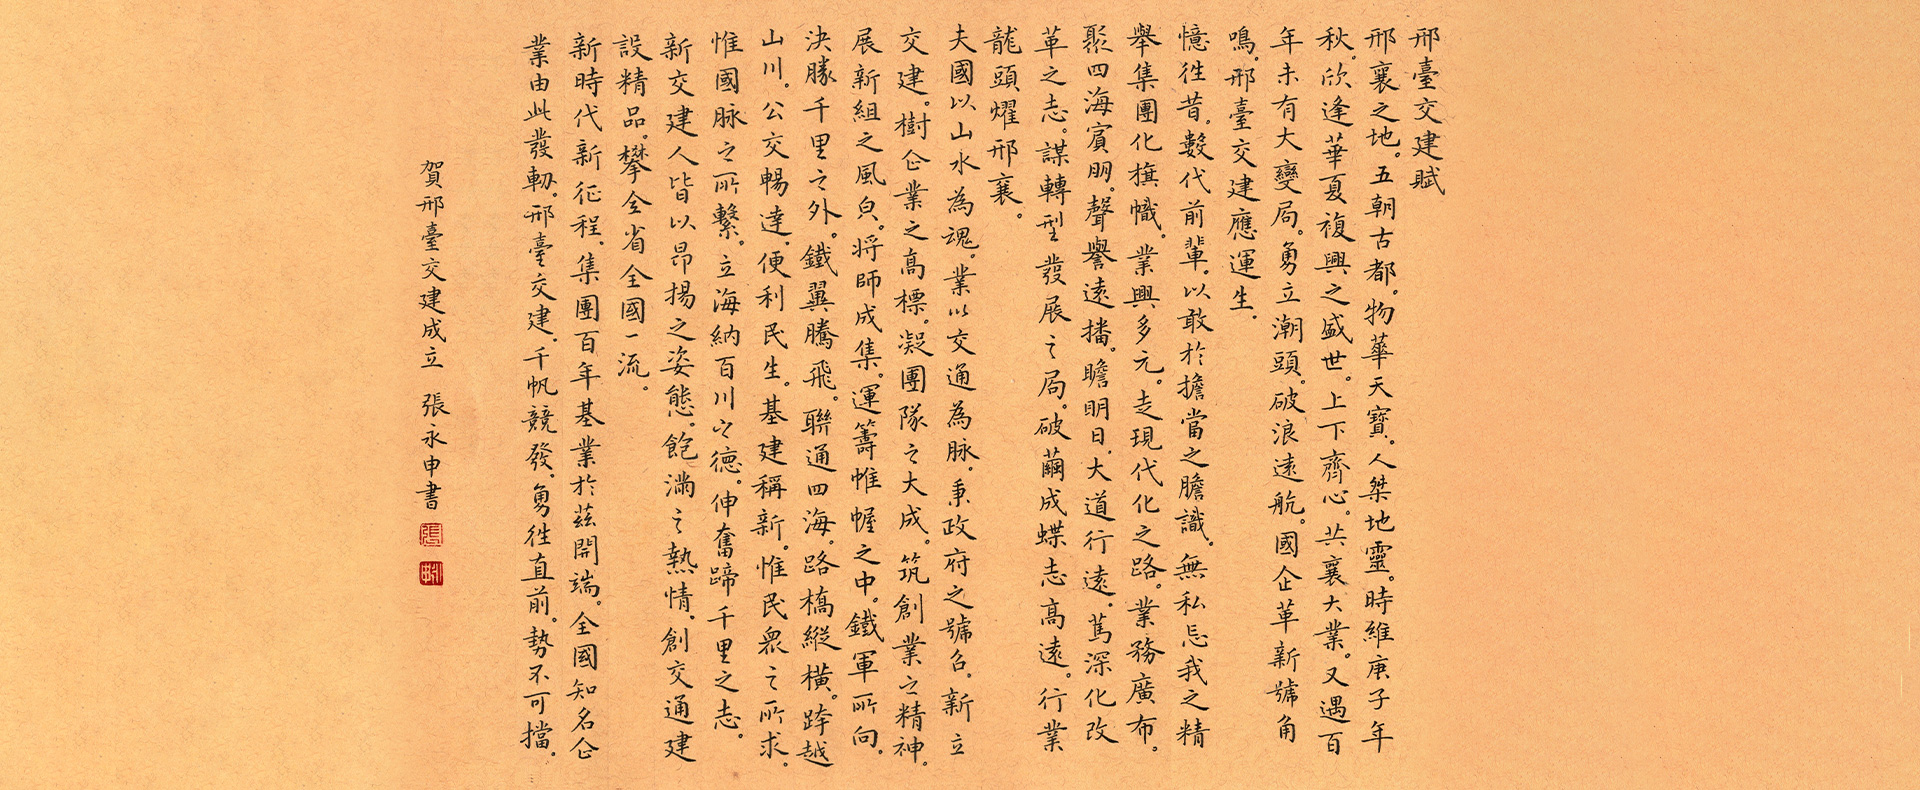 邢臺交建賦
邢襄之地。五朝古都。物華天寶。人桀地靈。時維庚子年
秋。欣逢華夏複興之盛世。上下齊心。共襄大業。又遇百
年未有大變局。勇立潮頭。破浪遠航。國企革新號角
鳴。邢臺交建應運生。
憶往昔。數代前輩。以敢於擔當之膽識。無私忘我之精
舉集團化旗幟。業興多元。走現代化之路。業務廣布。
聚四海賓朋。聲譽遠播。瞻明日。大道行遠。篤深化改
革之志。謀轉型發展之局。破繭成蝶志高遠。行業
龍頭耀邢襄。
夫國以山水為魂。業以交通為脉。秉政府之號召。新立
交建。樹企業之高標。凝團隊之大成。筑創業之精神。
展新組之風皃。將師成集。運籌帷幄之中。鐵軍所向。
決勝千里之外。鐵翼騰飛。聯通四海。路橋縱橫。跨越
山川。公交暢達。便利民生。基建稱新。惟民衆之所求。
惟國脉之所繫。立海納百川之德。伸奮蹄千里之志。
新交建人皆以昂揚之姿態。飽滿之熱情。創交通建
設精品。攀全省全國一流。
新時代新征程。集團百年基業於茲開端。全國知名企
業由此發軔。邢臺交建。千帆競發。勇往直前。勢不可擋。
賀邢臺交建成立 張永申書